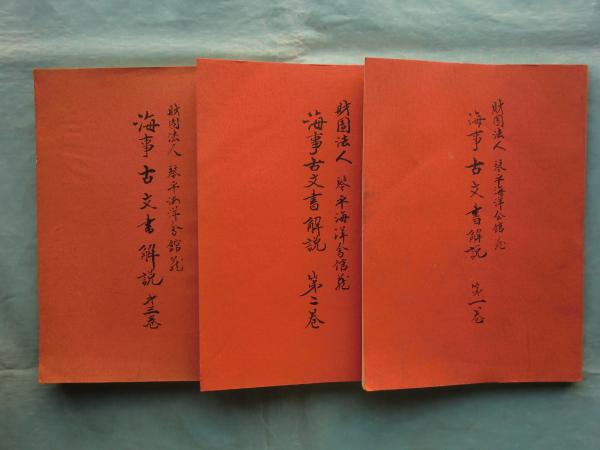 財団法人 琴平海洋会館蔵
海事古文書解説 第一巻
財団法人 琴平海洋会館蔵
海事古文書解説 第二巻
財団法人 琴平海洋会館蔵
海事古文書解説 第三巻